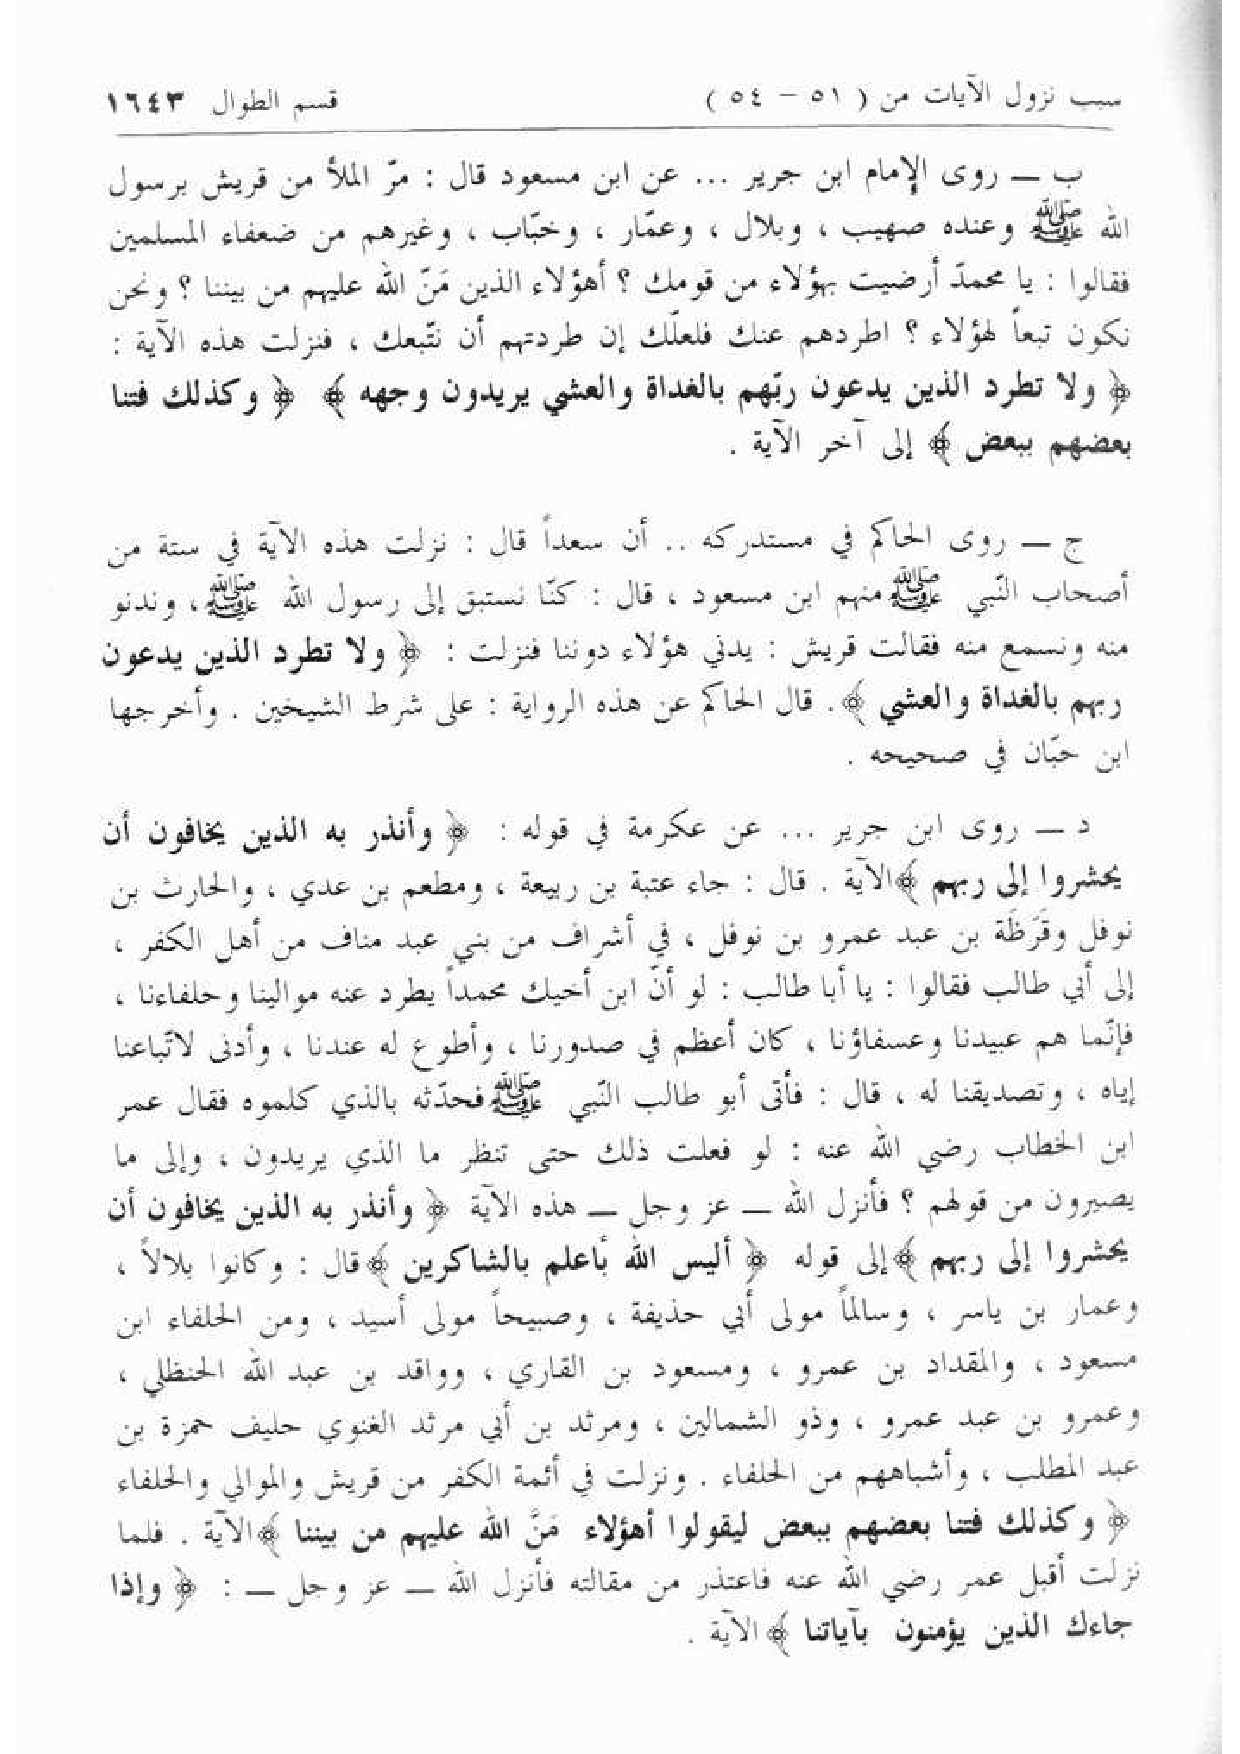 سبب نزول الآيات من ( ٥١ – ٥٤ ) قسم الطوال ١٦٤٣
ب — روى الإمام ابن جرير ... عن ابن مسعود قال : مرّ الملأ من قريش برسول
الله ﷺ وعنده صهيب ، وبلال ، وعمّار ، وخبّاب ، وغيرهم من ضعفاء المسلمين
فقالوا : يا محمدّ أرضيت بهؤلاء من قومك ؟ أهؤلاء الذين مَنّ الله عليهم من بيننا ؟ ونحن
نكون تبعاً لهؤلاء ؟ اطردهم عنك فلعلّك إن طردتهم أن نتّبعك ، فنزلت هذه الآية :
﴿ ولا تطرد الذين يدعون ربّهم بالغداة والعشي يريدون وجهه ﴾ ﴿ وكذلك فتنا
بعضهم ببعض ﴾ إلى آخر الآية .
ج — روى الحاكم في مستدركه .. أن سعداً قال : نزلت هذه الآية في ستة من
أصحاب النّبي ﷺ منهم ابن مسعود ، قال : كنّا نستبق إلى رسول الله ﷺ ، وندنو
منه ونسمع منه فقالت قريش : يدني هؤلاء دوننا فنزلت : ﴿ ولا تطرد الذين يدعون
ربهم بالغداة والعشي ﴾ . قال الحاكم عن هذه الرواية : على شرط الشيخين . وأخرجها
ابن حبّان في صحيحه .
د — روى ابن جرير ... عن عكرمة في قوله : ﴿ وأنذر به الذين يخافون أن
يحشروا إلى ربهم ﴾ الآية . قال : جاء عتبة بن ربيعة ، ومطعم بن عدي ، والحارث بن
نوفل وقَرَظَة بن عبد عمرو بن نوفل ، في أشراف من بني عبد مناف من أهل الكفر ،
إلى أبي طالب فقالوا : يا أبا طالب : لو أنّ ابن أخيك محمداً يطرد عنه موالينا وحلفاءنا ،
فإنّما هم عبيدنا وعسفاؤنا ، كان أعظم في صدورنا ، وأطوع له عندنا ، وأدنى لاتّباعنا
إياه ، وتصديقنا له ، قال : فأتى أبو طالب النّبي ﷺ فحدّثه بالذي كلموه فقال عمر
ابن الخطاب رضي الله عنه : لو فعلت ذلك حتى تنظر ما الذي يريدون ، وإلى ما
يصيرون من قولهم ؟ فأنزل الله — عز وجل — هذه الآية ﴿ وأنذر به الذين يخافون أن
يحشروا إلى ربهم ﴾ إلى قوله ﴿ أليس الله بأعلم بالشاكرين ﴾ قال : وكانوا بلالاً ،
وعمار بن ياسر ، وسالماً مولى أبي حذيفة ، وصبيحاً مولى أسيد ، ومن الحلفاء ابن
مسعود ، والمقداد بن عمرو ، ومسعود بن القاري ، وواقد بن عبد الله الحنظلي ،
وعمرو بن عبد عمرو ، وذو الشمالين ، ومرثد بن أبي مرثد الغنوي حليف حمزة بن
عبد المطلب ، وأشباههم من الحلفاء . ونزلت في أئمة الكفر من قريش والموالي والحلفاء
﴿ وكذلك فتنا بعضهم ببعض ليقولوا أهؤلاء مَنَّ الله عليهم من بيننا ﴾ الآية . فلما
نزلت أقبل عمر رضي الله عنه فاعتذر من مقالته فأنزل الله — عز وجل — : ﴿ وإذا
جاءك الذين يؤمنون بآياتنا ﴾ الآية .